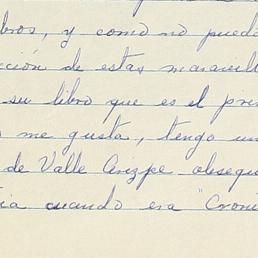 bros, y como no puedo
cción de estas maravill
su libro que es el pri
me gusta, tengo un
de Valle Arizpe obsequi
ia cuando era "Croni